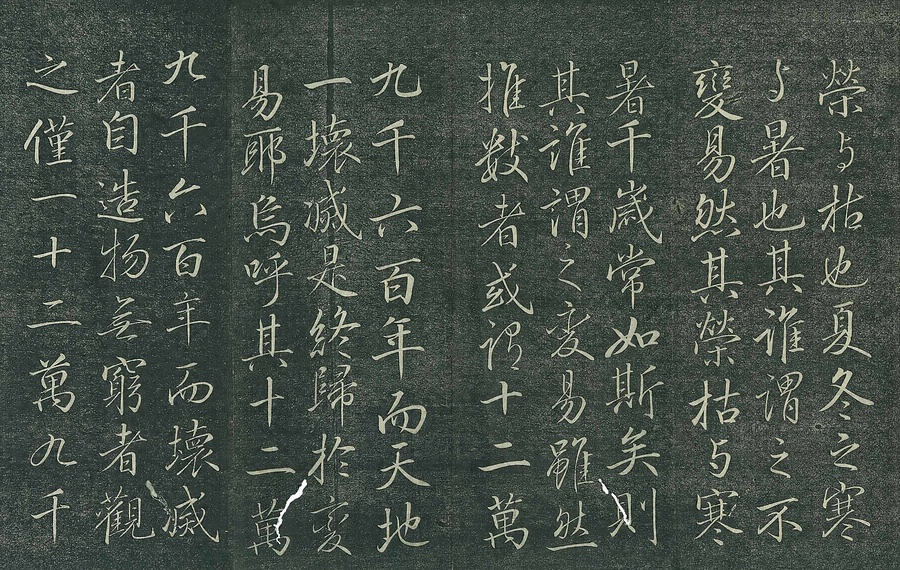 榮与枯也夏冬之寒
与暑也其誰謂之不
變易然其榮枯与寒
暑千歲常如斯矣則
其誰謂之变易雖然
推數者或谓十二萬
九千六百年而天地
一壞滅是終歸於变
易耶烏呼其十二萬
九千六百年而壞滅
者自造物无窮者觀
之僅一十二萬九千